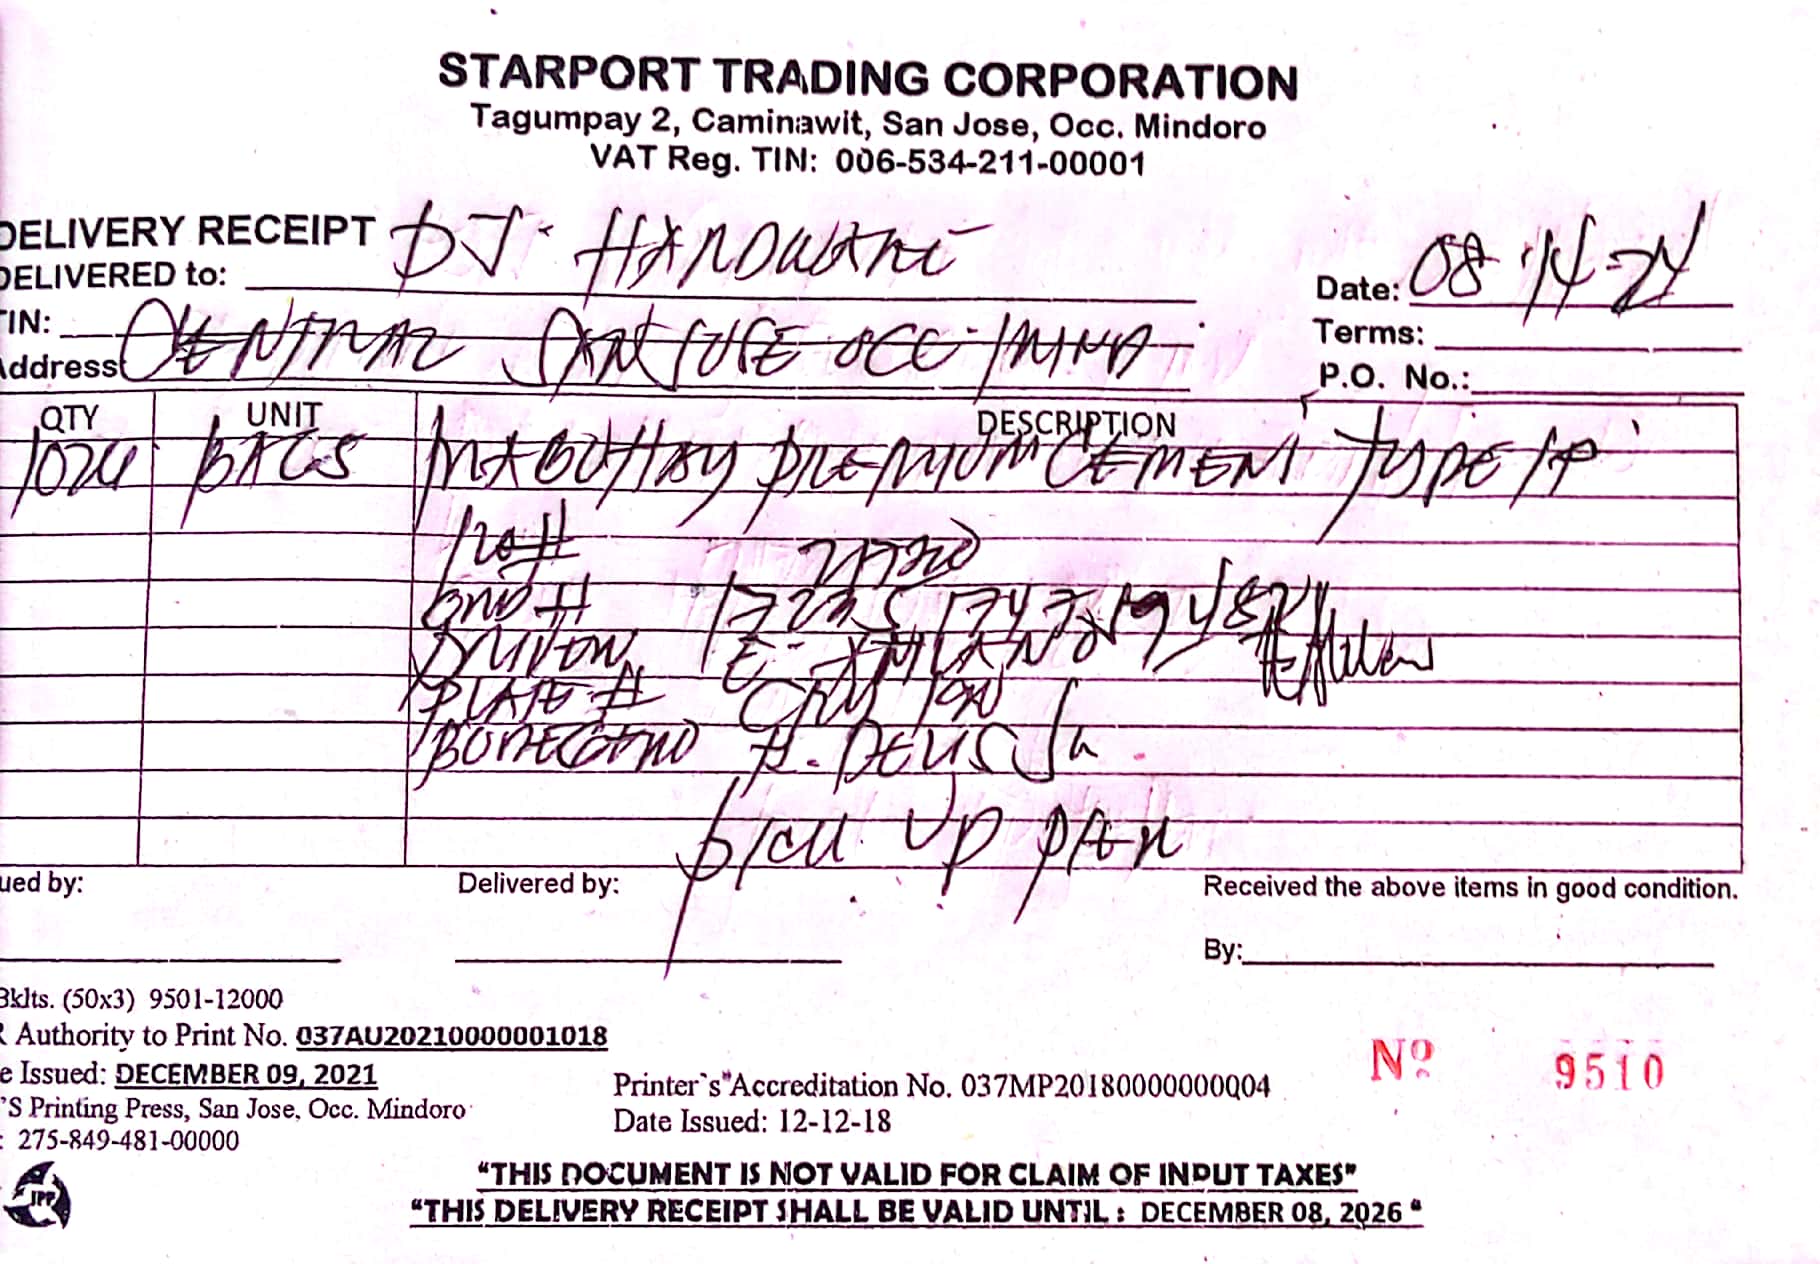 STARPORT TRADING CORPORATION
Tagumpay 2, Caminawit, San Jose, Occ. Mindoro
VAT Reg. TIN: 006-534-211-00001
DELIVERY RECEIPT
DELIVERED to: DJ. HARDWARE
Date: 08-14-24
TIN:
Terms:
Address CENTRAL SAN JOSE OCC. MIND
P.O. No.:
QTY UNIT DESCRIPTION
BAGS MABUHAY PREMIUM CEMENT TYPE 1P
PO#
DRIVER E.
PLATE #
pick up
ued by: Delivered by: Received the above items in good condition.
By:
Bklts. (50x3) 9501-12000
Authority to Print No. 037AU20210000001018
e Issued: DECEMBER 09, 2021
'S Printing Press, San Jose, Occ. Mindoro
: 275-849-481-00000
Printer`s"Accreditation No. 037MP20180000000Q04
Date Issued: 12-12-18
Nº 9510
IPP
“THIS DOCUMENT IS NOT VALID FOR CLAIM OF INPUT TAXES”
“THIS DELIVERY RECEIPT SHALL BE VALID UNTIL : DECEMBER 08, 2026 “